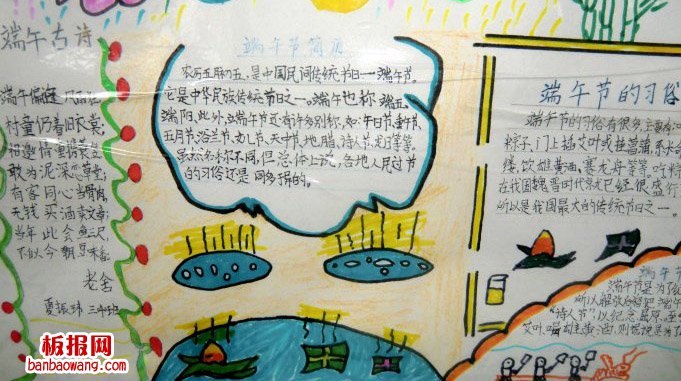 端午古诗
端午偏逢风雨狂
村童仍着旧衣裳
敢为泥深恋草堂
有客同心当骨肉
无钱买酒卖文章
当年此会鱼三尺
不似今朝豆味香
老舍
夏振玮 三年班
端午节简介
农历五月初五,是中国民间传统节日——端午节。
它是中华民族传统节日之一。端午也称端五,
端阳。此外,端午节还有许多别称,如:午日节、重午节、
五月节、浴兰节、女儿节、天中节、地腊、诗人节、龙日等等。
虽然名称不同,但总体上说,各地人民过节
的习俗还是同多于异的。
端午节的习俗
端午节的习俗有很多,主要有
粽子,门上插艾叶或挂菖蒲,系长命
缕,饮雄黄酒,赛龙舟等等。吃粽
在我国魏晋时代就已经很盛行
所以是我国最大的传统节日之一。
端午节
端午节是为了
所以解放后曾把端午
“诗人节”以纪念屈原,至
板报网
banbaowang.com